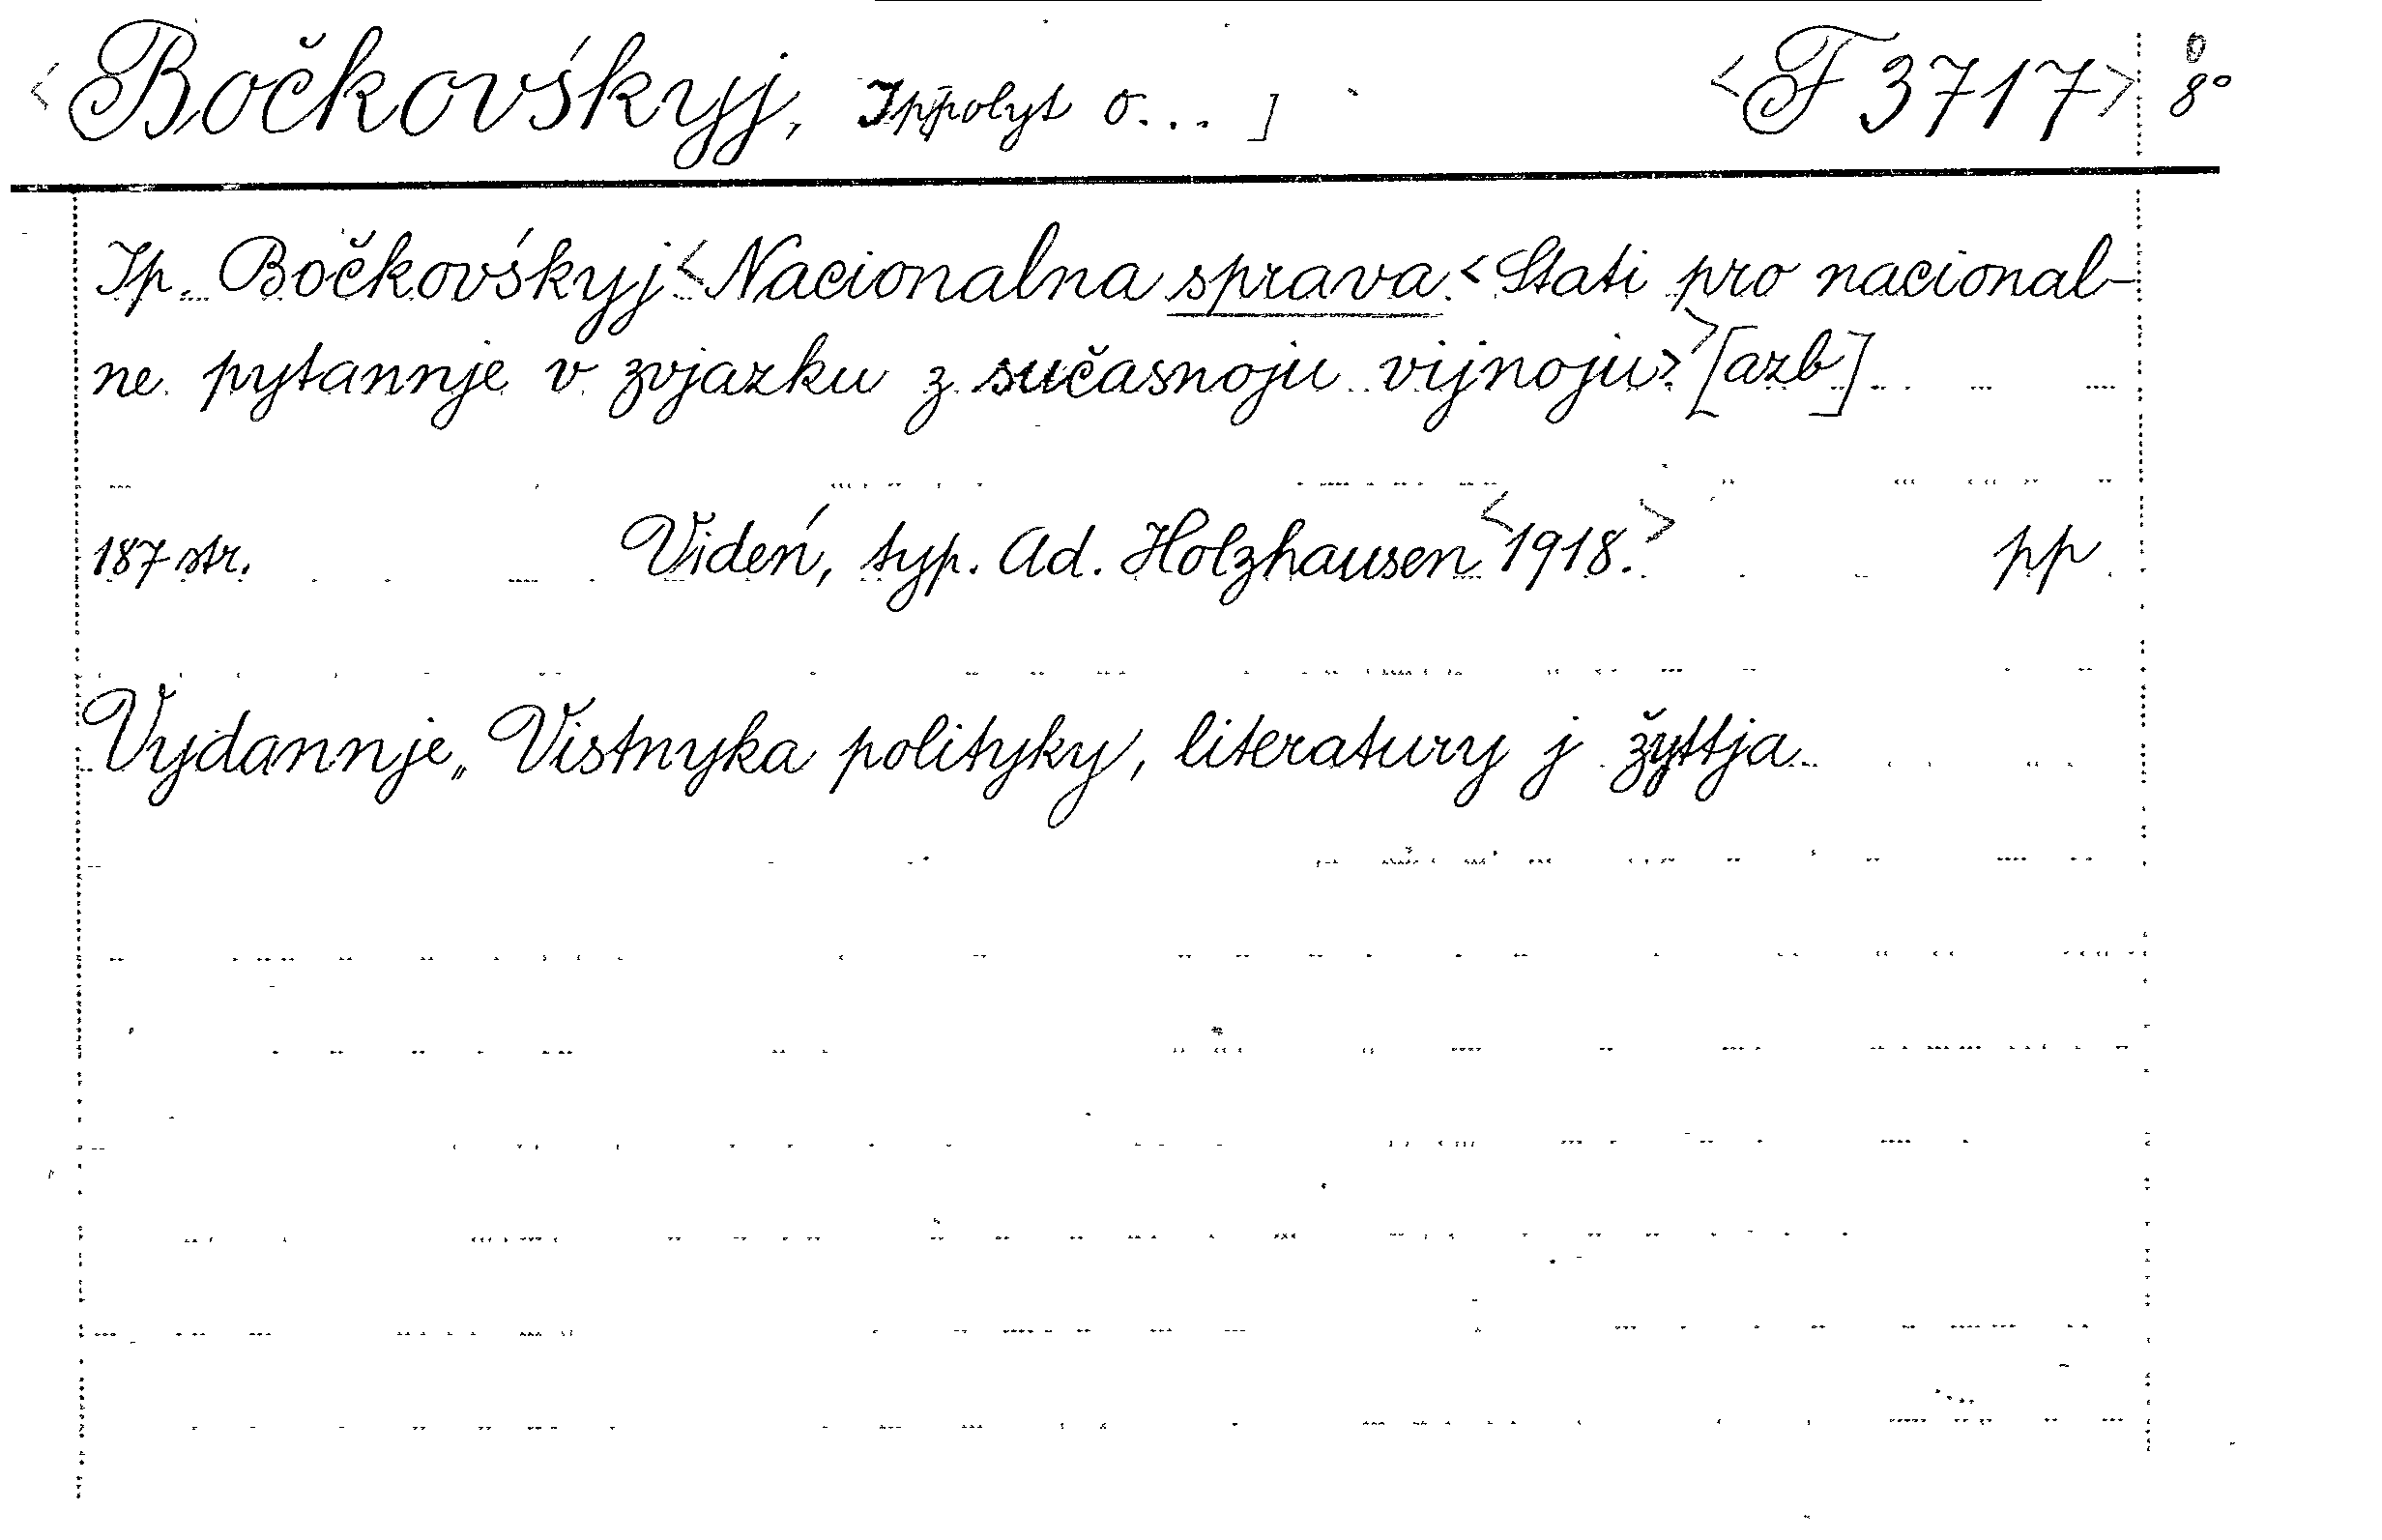 <Bočkovśkyj, Ippolyt O... ] <F 3717> 8°
Ip. Bočkovśkyj <Nacionalna sprava. <Stati pro nacional-
ne pytannje v zvjazku z sučasnoju vijnoju>> [azb]
187 str. Videń, typ. Ad. Holzhausen <1918.> pp
Vydannje „Vistnyka polityky, literatury j žyttja